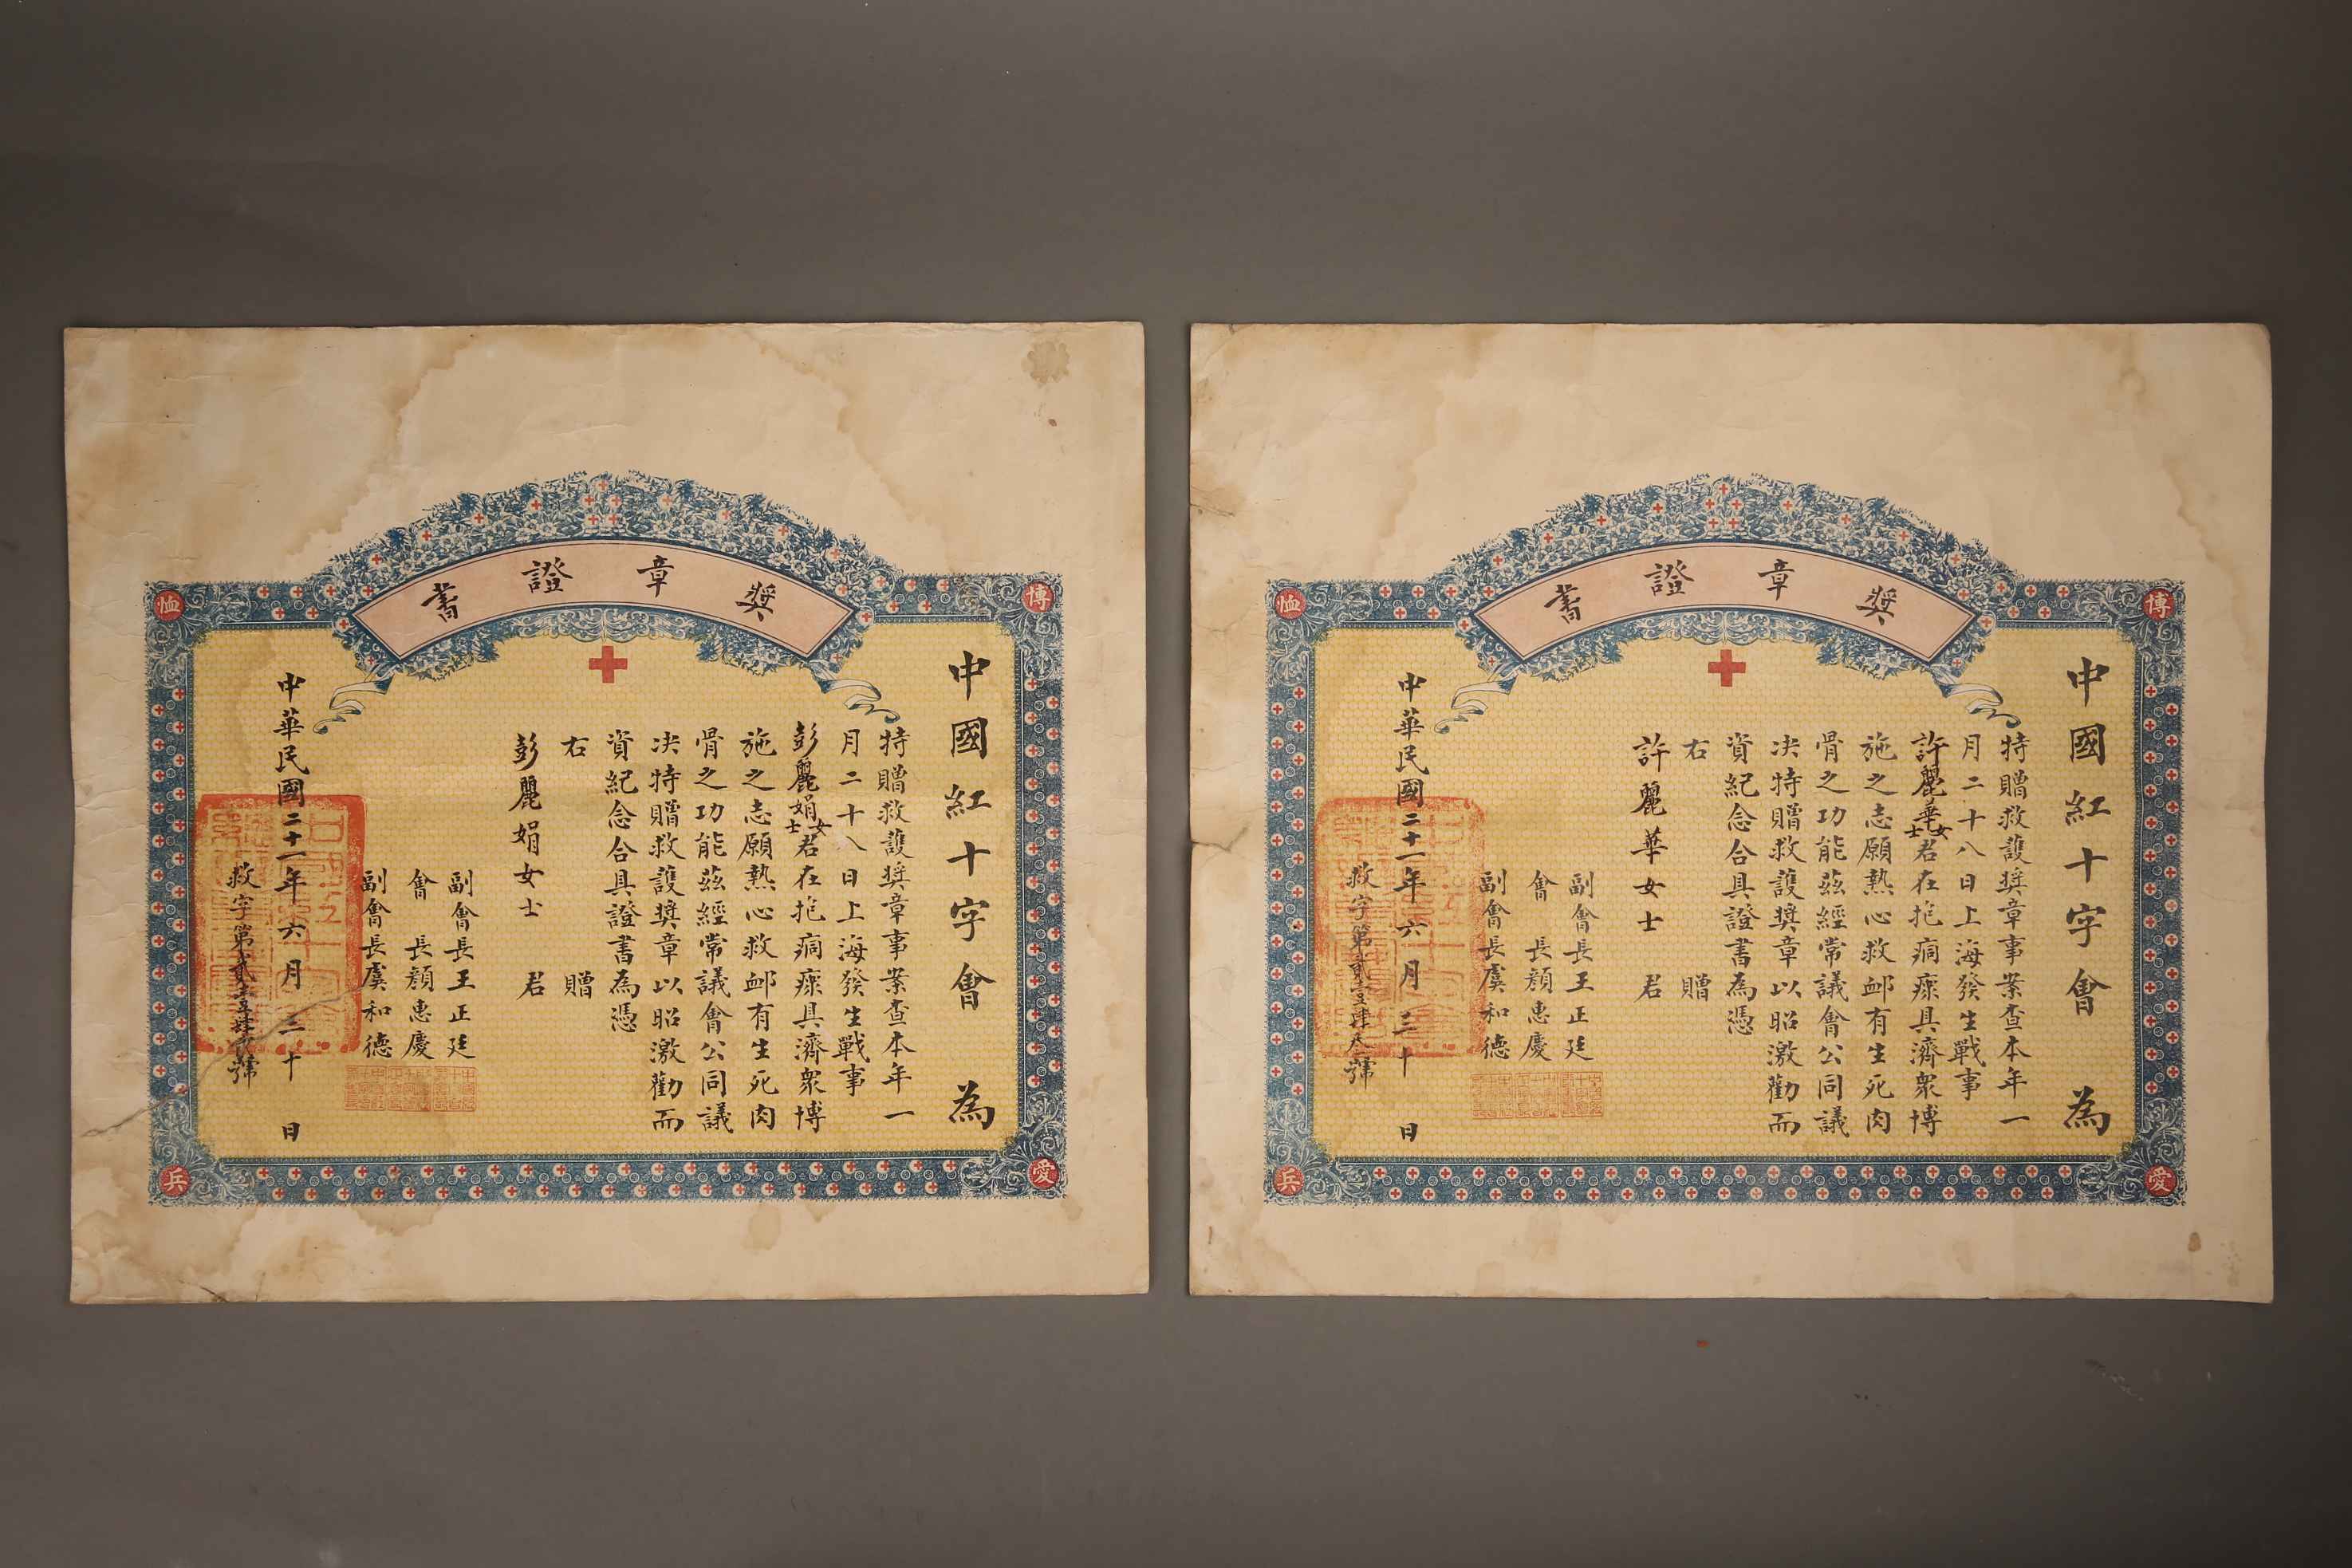 獎章證書
博
愛
恤
兵
中國紅十字會 為
特贈救護獎章事案查本年一
月二十八日上海發生戰事
彭麗娟女士君在抱痌瘝具濟眾博
施之志願熱心救卹有生死肉
骨之功能茲經常議會公同議
決特贈救護獎章以昭激勸而
資紀念合具證書為憑
右 贈
彭麗娟女士 君
副會長王正廷
會 長顏惠慶
副會長虞和德
中華民國二十一年六月三十日
救字第貳壹肆貳號
獎章證書
博
愛
恤
兵
中國紅十字會 為
特贈救護獎章事案查本年一
月二十八日上海發生戰事
許麗華女士君在抱痌瘝具濟眾博
施之志願熱心救卹有生死肉
骨之功能茲經常議會公同議
決特贈救護獎章以昭激勸而
資紀念合具證書為憑
右 贈
許麗華女士 君
副會長王正廷
會 長顏惠慶
副會長虞和德
中華民國二十一年六月三十日
救字第貳壹肆叁號